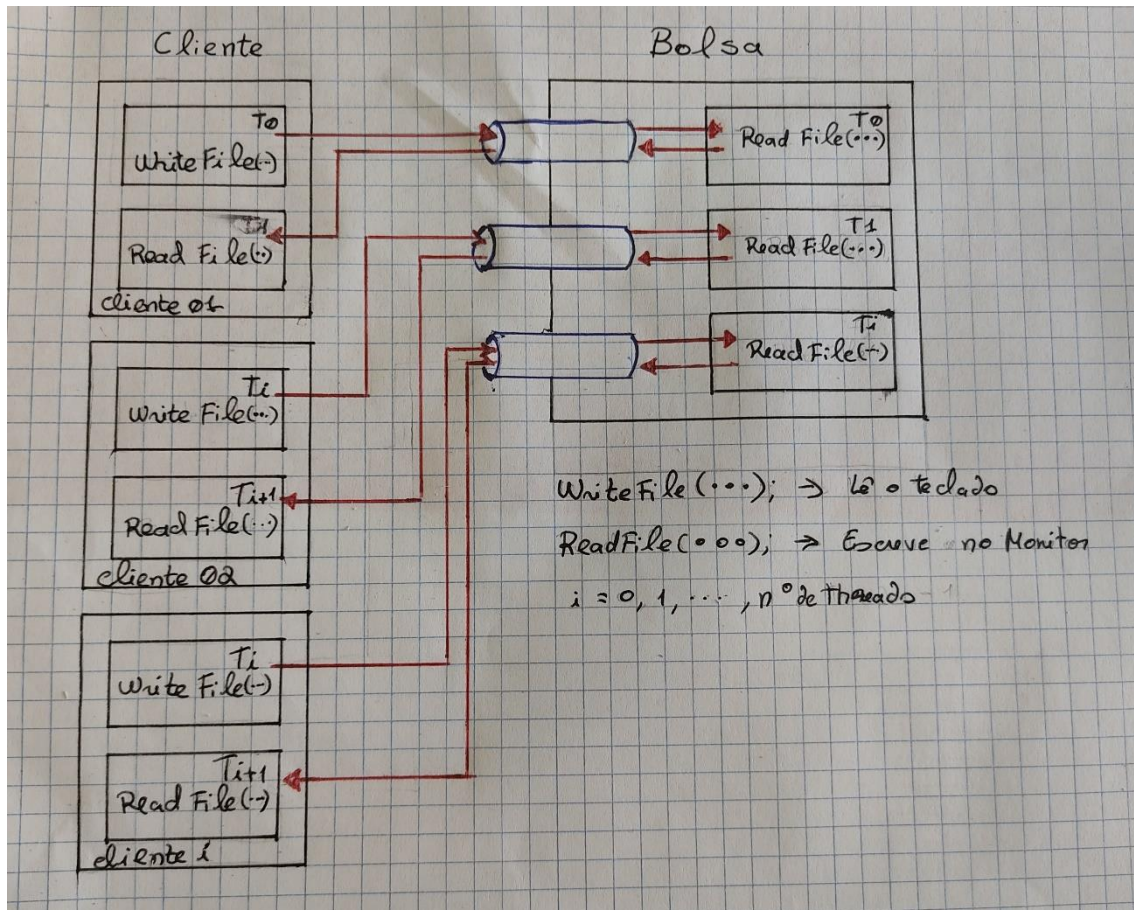 Cliente
Bolsa
T0
Write File(..)
T1
Read File(..)
cliente 01
Ti
Write File(...)
Ti+1
Read File(...)
cliente 02
Ti
Write File(..)
Ti+1
Read File(..)
cliente i
T0
Read File(...)
T1
Read File(...)
Ti
Read File(..)
WriteFile(...); → Lê o teclado
ReadFile(...); → Escreve no Monitor
i = 0, 1, ..., nº de threads